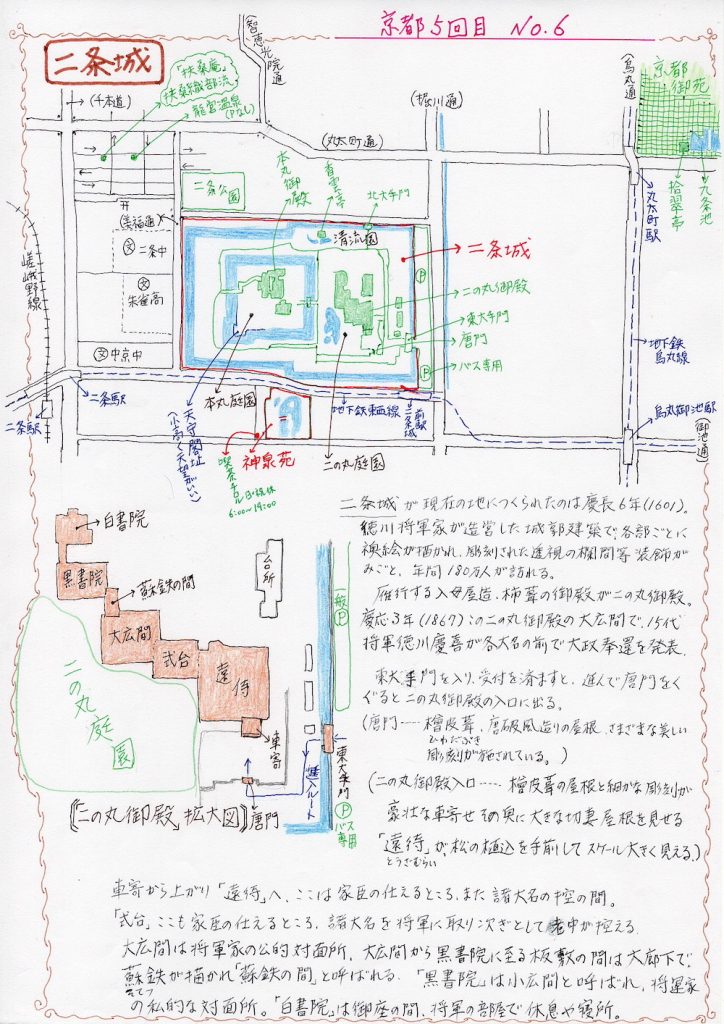 京都5回目 No.6
二条城
(千本通)
「扶桑庵」
扶桑織部流
龍宮温泉
(Pなし)
(智恵光院通)
(丸太町通)
(堀川通)
(烏丸通)
京都御苑
九条池
拾翠亭
丸太町駅
二条公園
本丸御殿
香雲亭
北大手門
清流園
二条城
二の丸御殿
東大手門
唐門
P
P バス専用
(美福通)
文 二条中
文 朱雀高
文 中京中
嵯峨野線
二条駅
二条駅
天守閣址
(小高く天望がいい)
本丸庭園
神泉苑
喫茶チロル 日・祝休
6:00〜19:00
二の丸庭園
地下鉄東西線
二条城前駅
地下鉄
烏丸線
烏丸御池駅
(御池通)
二条城が現在の地につくられたのは慶長6年(1601)。
徳川将軍家が造営した城郭建築で各部ごとに
襖絵が描かれ、彫刻された透視の欄間等装飾が
みごと、年間180万人が訪れる。
雁行する入母屋造、柿葺の御殿が二の丸御殿。
慶応3年(1867)この二の丸御殿の大広間で、15代
将軍徳川慶喜が各大名の前で大政奉還を発表。
東大手門を入り、受付を済ますと、進んで唐門をく
ぐると二の丸御殿の入口に出る。
(唐門‥‥檜皮葺、唐破風造りの屋根、さまざまな美しい
ひわだぶき
彫刻が施されている。)
(二の丸御殿入口‥‥‥檜皮葺の屋根と細かな彫刻が
豪壮な車寄せその奥に大きな切妻屋根を見せる
「遠侍」が、松の植込を手前してスケール大きく見える。)
とうざむらい
白書院
黒書院
蘇鉄の間
大広間
式台
遠侍
車寄
台所
二の丸庭園
唐門
進入ルート
東大手門
一般P
P バス専用
《「二の丸御殿」拡大図》
車寄から上がり「遠侍」へ、ここは家臣の仕えるところ、また諸大名の控の間。
「式台」ここも家臣の仕えるところ、諸大名を将軍に取り次ぎとして老中が控える
大広間は将軍家の公的対面所、大広間から黒書院に至る板敷の間は大廊下で、
蘇鉄が描かれ「蘇鉄の間」と呼ばれる。「黒書院」は小広間と呼ばれ、将軍家
そてつ
の私的な対面所。「白書院」は御座の間、将軍の部屋で休息や寝所。